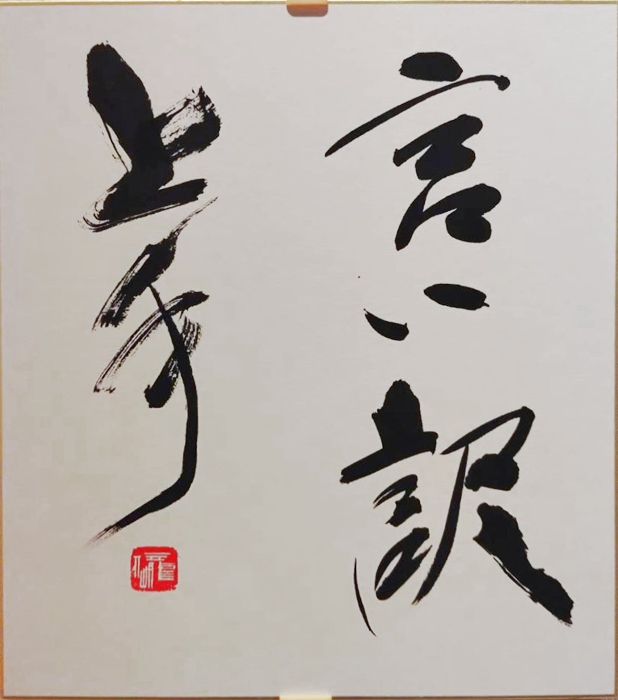 言い訳
上手